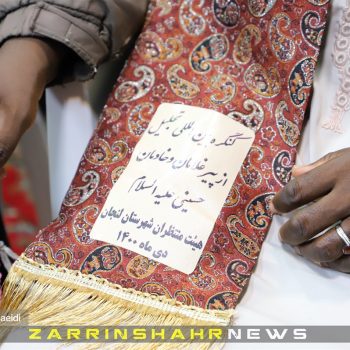 کنگره بین المللی تجلیل
از پیر غلامان و خادمان
حسینی علیه السلام
هیئت منتظران شهرستان لنجان
دی ماه ۱۴۰۰
aeidi
ZARRINSHAHRNEWS